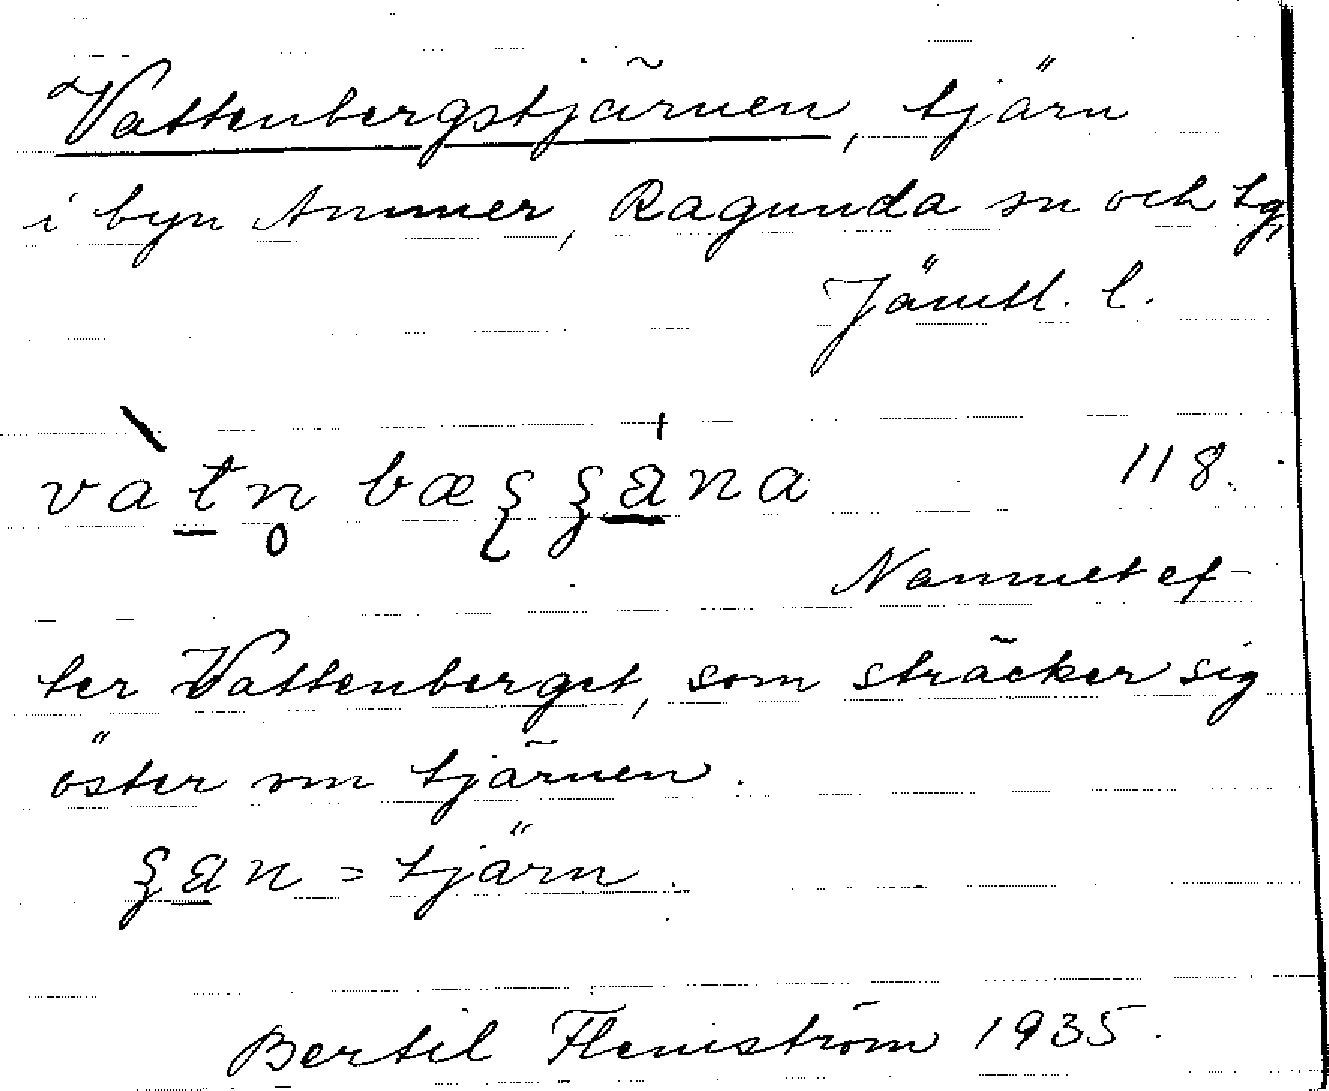 Vattenbergstjärnen, tjärn
i byn Ammer, Ragunda sn och tg,
Jämtl. l.
118.
Namnet ef-
ter Vattenberget, som sträcker sig
öster om tjärnen.
= tjärn.
Bertil Flemström 1935.